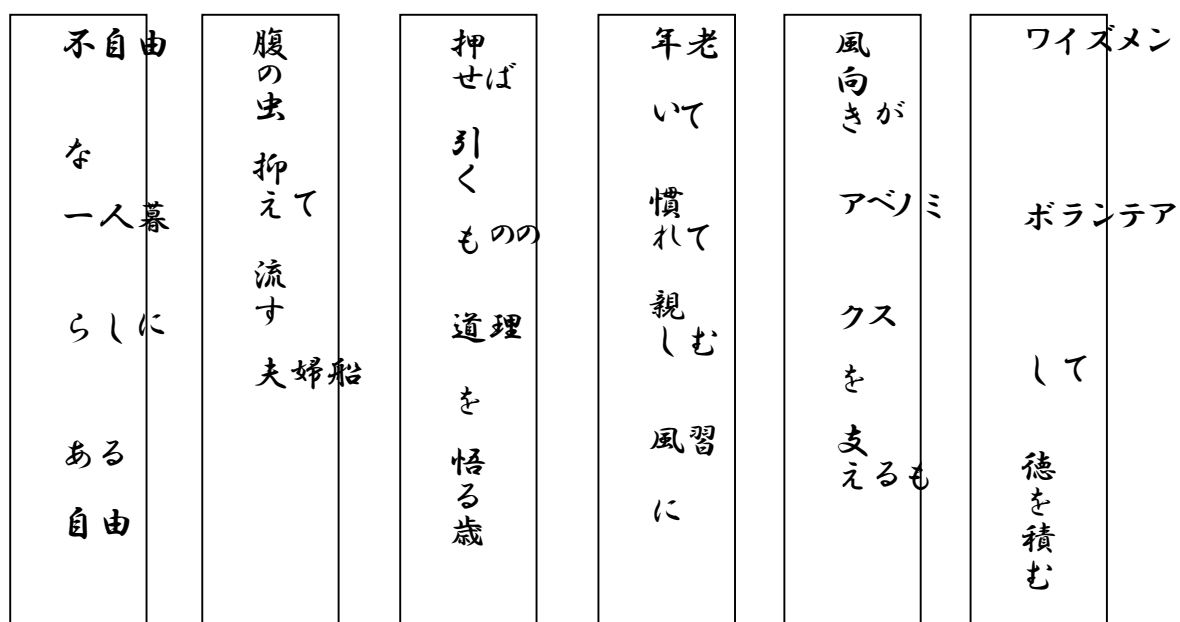 ワイズメンボランテアして徳を積む
風向きがアベノミクスを支えるも
年老いて慣れて親しむ風習に
押せば引くものの道理を悟る歳
腹の虫抑えて流す夫婦船
不自由な一人暮らしにある自由